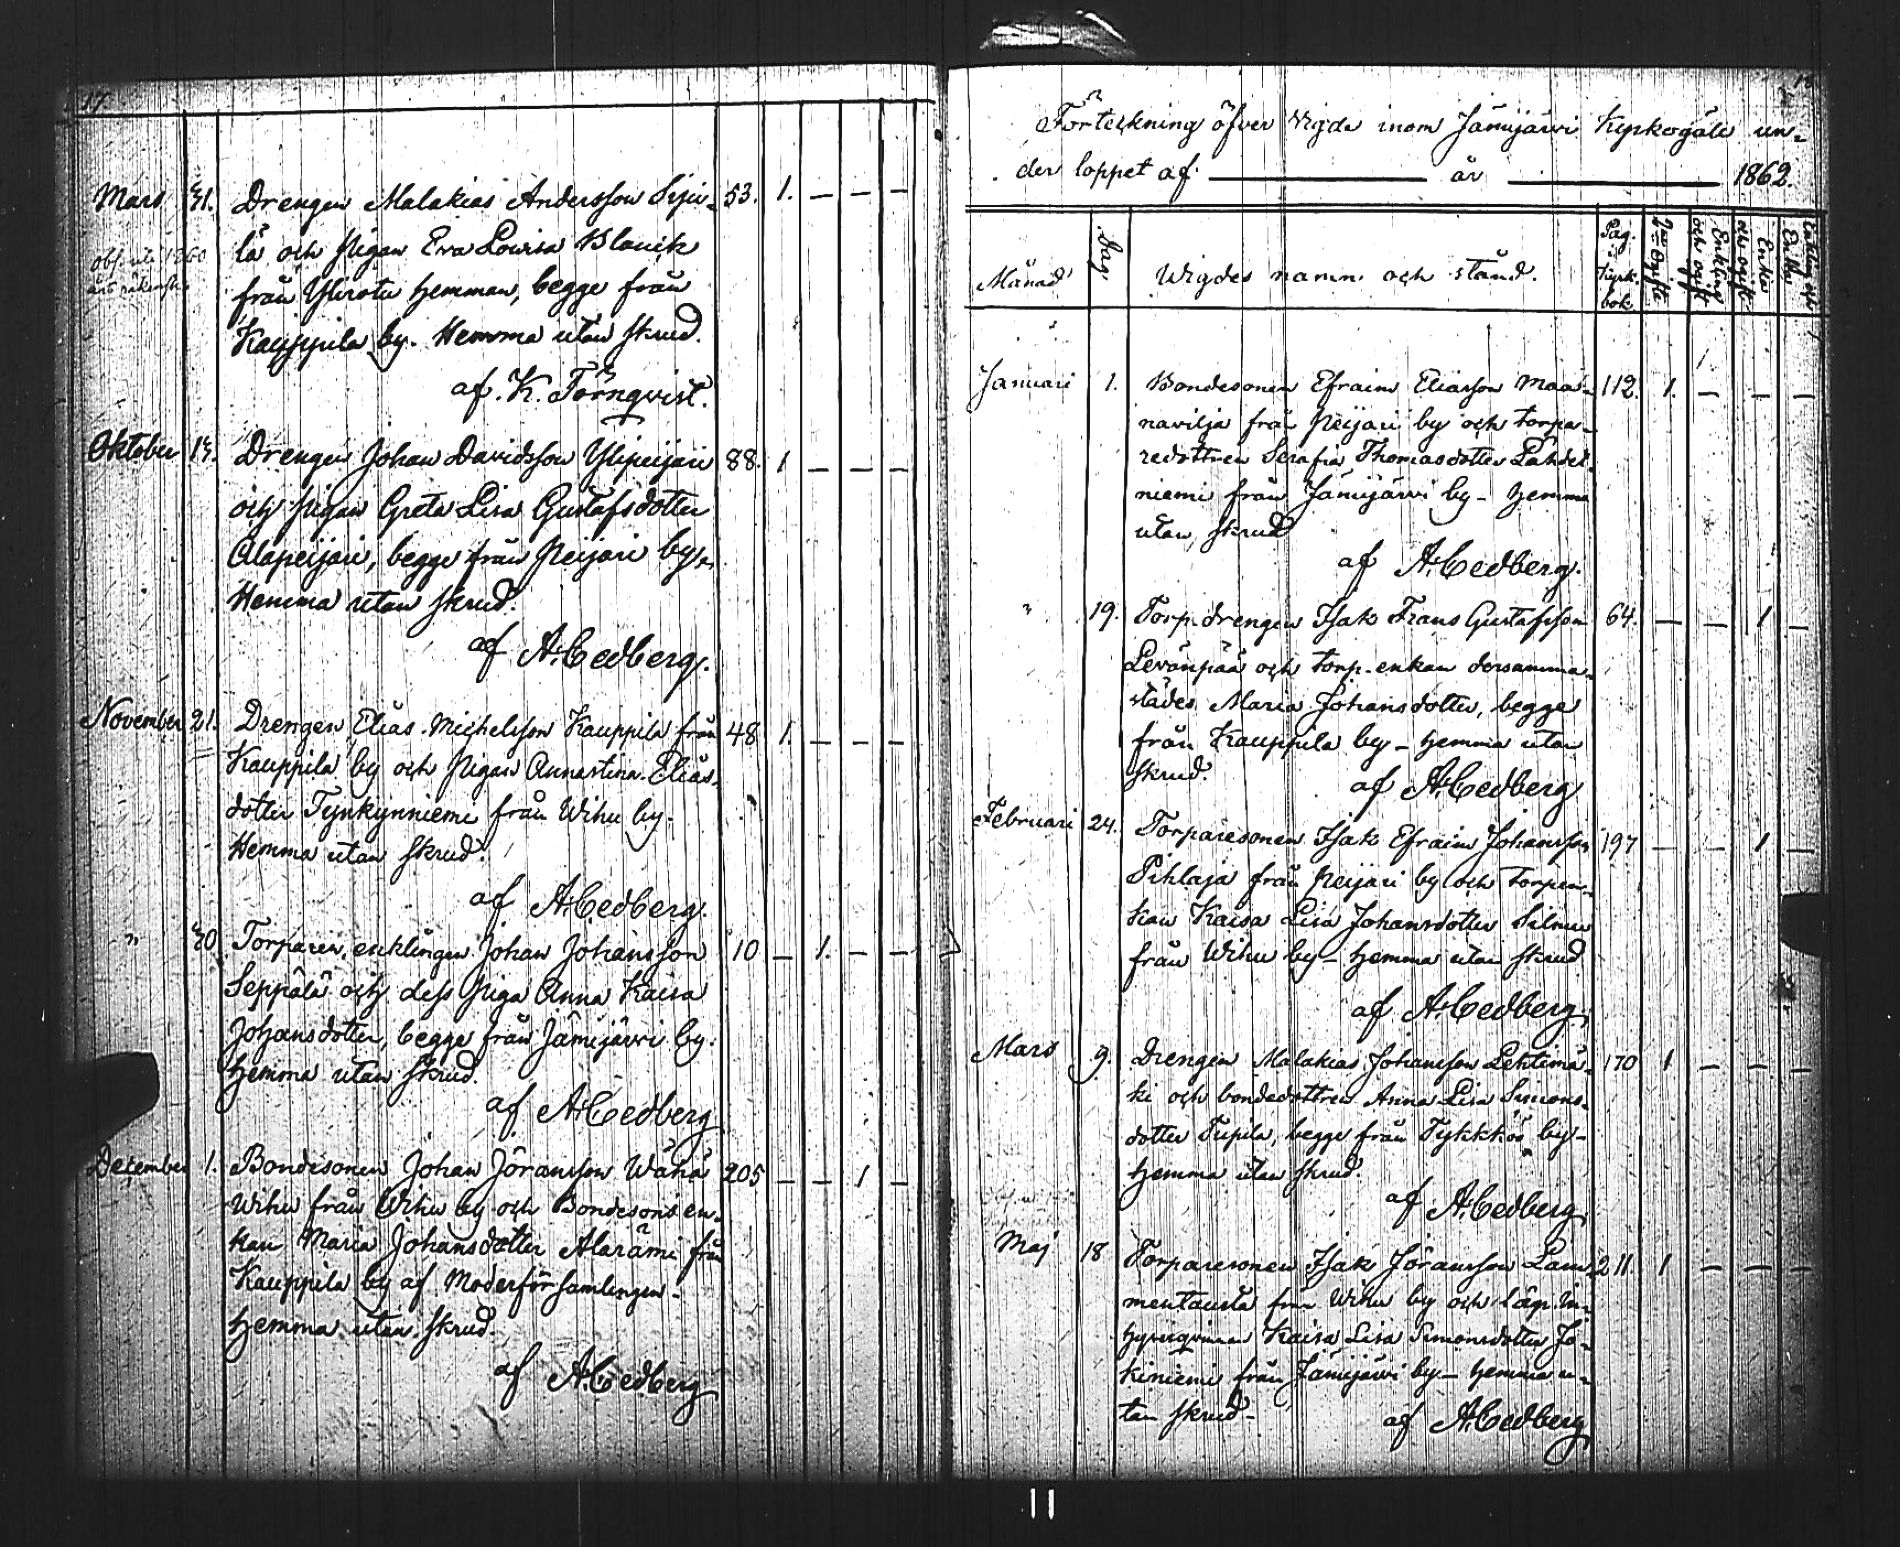 17
Mars 31. Drengen Malakias Andersson Sipi- 53. 1. — — —
lä och Pigan Eva Lovisa Blanik
från Ylirotu hemman, begge från
Kauppila by. Hemma utan skrud.
af. K. Törnqvist.
Oktober 13. Drengen Johan Davidsson Ylipeijari 88. 1 — — —
och Pigan Greta Lisa Gustafsdotter
Alapeijari, begge från Peijari by.
Hemma utan skrud.
af A. Cedberg.
November 21. Drengen Elias Michelsson Kauppila från 48 1. — — —
Kauppila by och Pigan Annastina Elias-
dotter Tynkynniemi från Wihu by.
Hemma utan skrud.
af A. Cedberg.
" 30 Torparen, enklingen Johan Johansson 10 — 1. — —
Seppälä och dess Piga Anna Kaisa
Johansdotter, begge från Jämijärvi by.
Hemma utan skrud.
af A. Cedberg
December 1. Bondesonen Johan Jöransson Wähä 205 — — 1 —
Wihu från Wihu by och Bondesons en-
kan Maria Johansdotter Alarämi från
Kauppila by af Moderförsamlingen.
Hemma utan skrud.
af A. Cedberg
Förteckning öfver Vigde inom Jämijärvi Kyrkogäll un-
der loppet af — år — 1862.
Månad Dag. Wigdes namn och stånd. Pag. i kyrk. bok
Januari 1. Bondesonen Efraim Eliasson Maa- 112. 1. — — —
navilja från Peijari by och torpa-
redottren Serafia Thomasdotter Lähdet-
niemi från Jämijärvi by - hemma
utan skrud
af A. Cedberg.
" 19. Torp.drengen Isak Frans Gustafsson 64. — — 1 —
Levänpää och torp.enkan dersamma-
städes Maria Johansdotter, begge
från Kauppila by - hemma utan
skrud.
af A. Cedberg
Februari 24. Torparesonen Isak Efraim Johansson 197 — — 1 —
Pihlaja från Peijari by och torpen-
kan Kaisa Lisa Johansdotter
från Wihu by - hemma utan skrud
af A. Cedberg
Mars 9. Drengen Malakias Johansson Lehtimä- 170 1 — — —
ki och bondedottren Anna Lisa Simons-
dotter Pispila, begge från Tykkköö by -
hemma utan skrud
af A. Cedberg
Maj 18 Torparesonen Isak Jöransson Lam- 211. 1 — — —
mentausta från Wihu by och
Kaisa Lisa Simonsdotter Jo-
kiniemi från Jämijärvi by - hemma u-
tan skrud -
af A. Cedberg
11